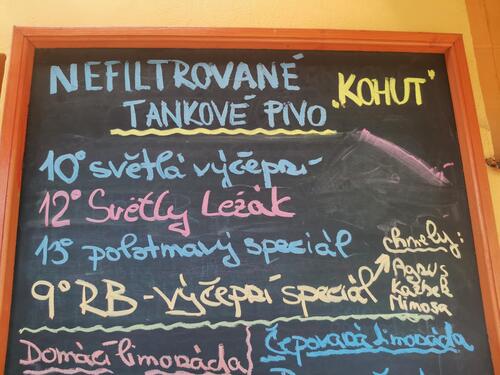 NEFILTROVANÉ
TANKOVÉ PIVO
„KOHUT“
10° světlá výčepzí
12° Světlý Ležák
13° polotmavý speciál
9° RB - výčepzí speciál
chmely:
Agnus
Kazbek
Mimosa
Domácí limonáda
Čepovaná limonáda